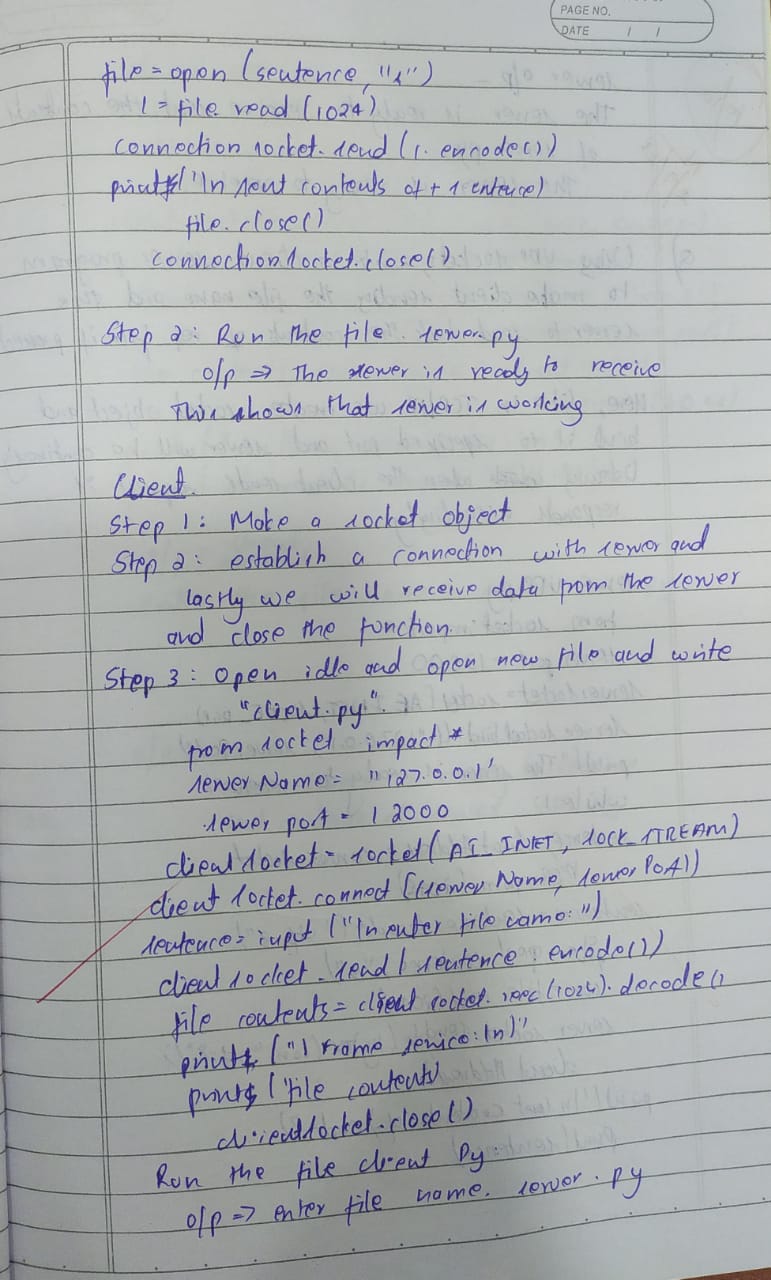 PAGE NO.
DATE / /
file = open (sentence, "r")
l = file read (1024)
connection socket. send (l. encode())
printf ("\n sent contents of + sentence)
file. close()
connection socket. close()
Step 2: Run the file. server.py
o/p => The server is ready to receive
This shows that server is working
Client.
Step 1: Make a socket object
Step 2: establish a connection with server and
lastly we will receive data from the server
and close the function.
Step 3: Open idle and open new file and write
"client.py".
from socket impact *
server Name = "127.0.0.1'
server port = 12000
client socket = socket (AI_INET, SOCK_STREAM)
client socket. connect ((server Name, server Port))
sentence = input ("\n enter file name: ")
client socket. send ( sentence. encode())
file contents = client socket. rec (1024). decode()
printf ("\ from server: \n)"
printf ('file contents)
clientsocket.close()
Run the file client py
o/p => enter file name. server. py